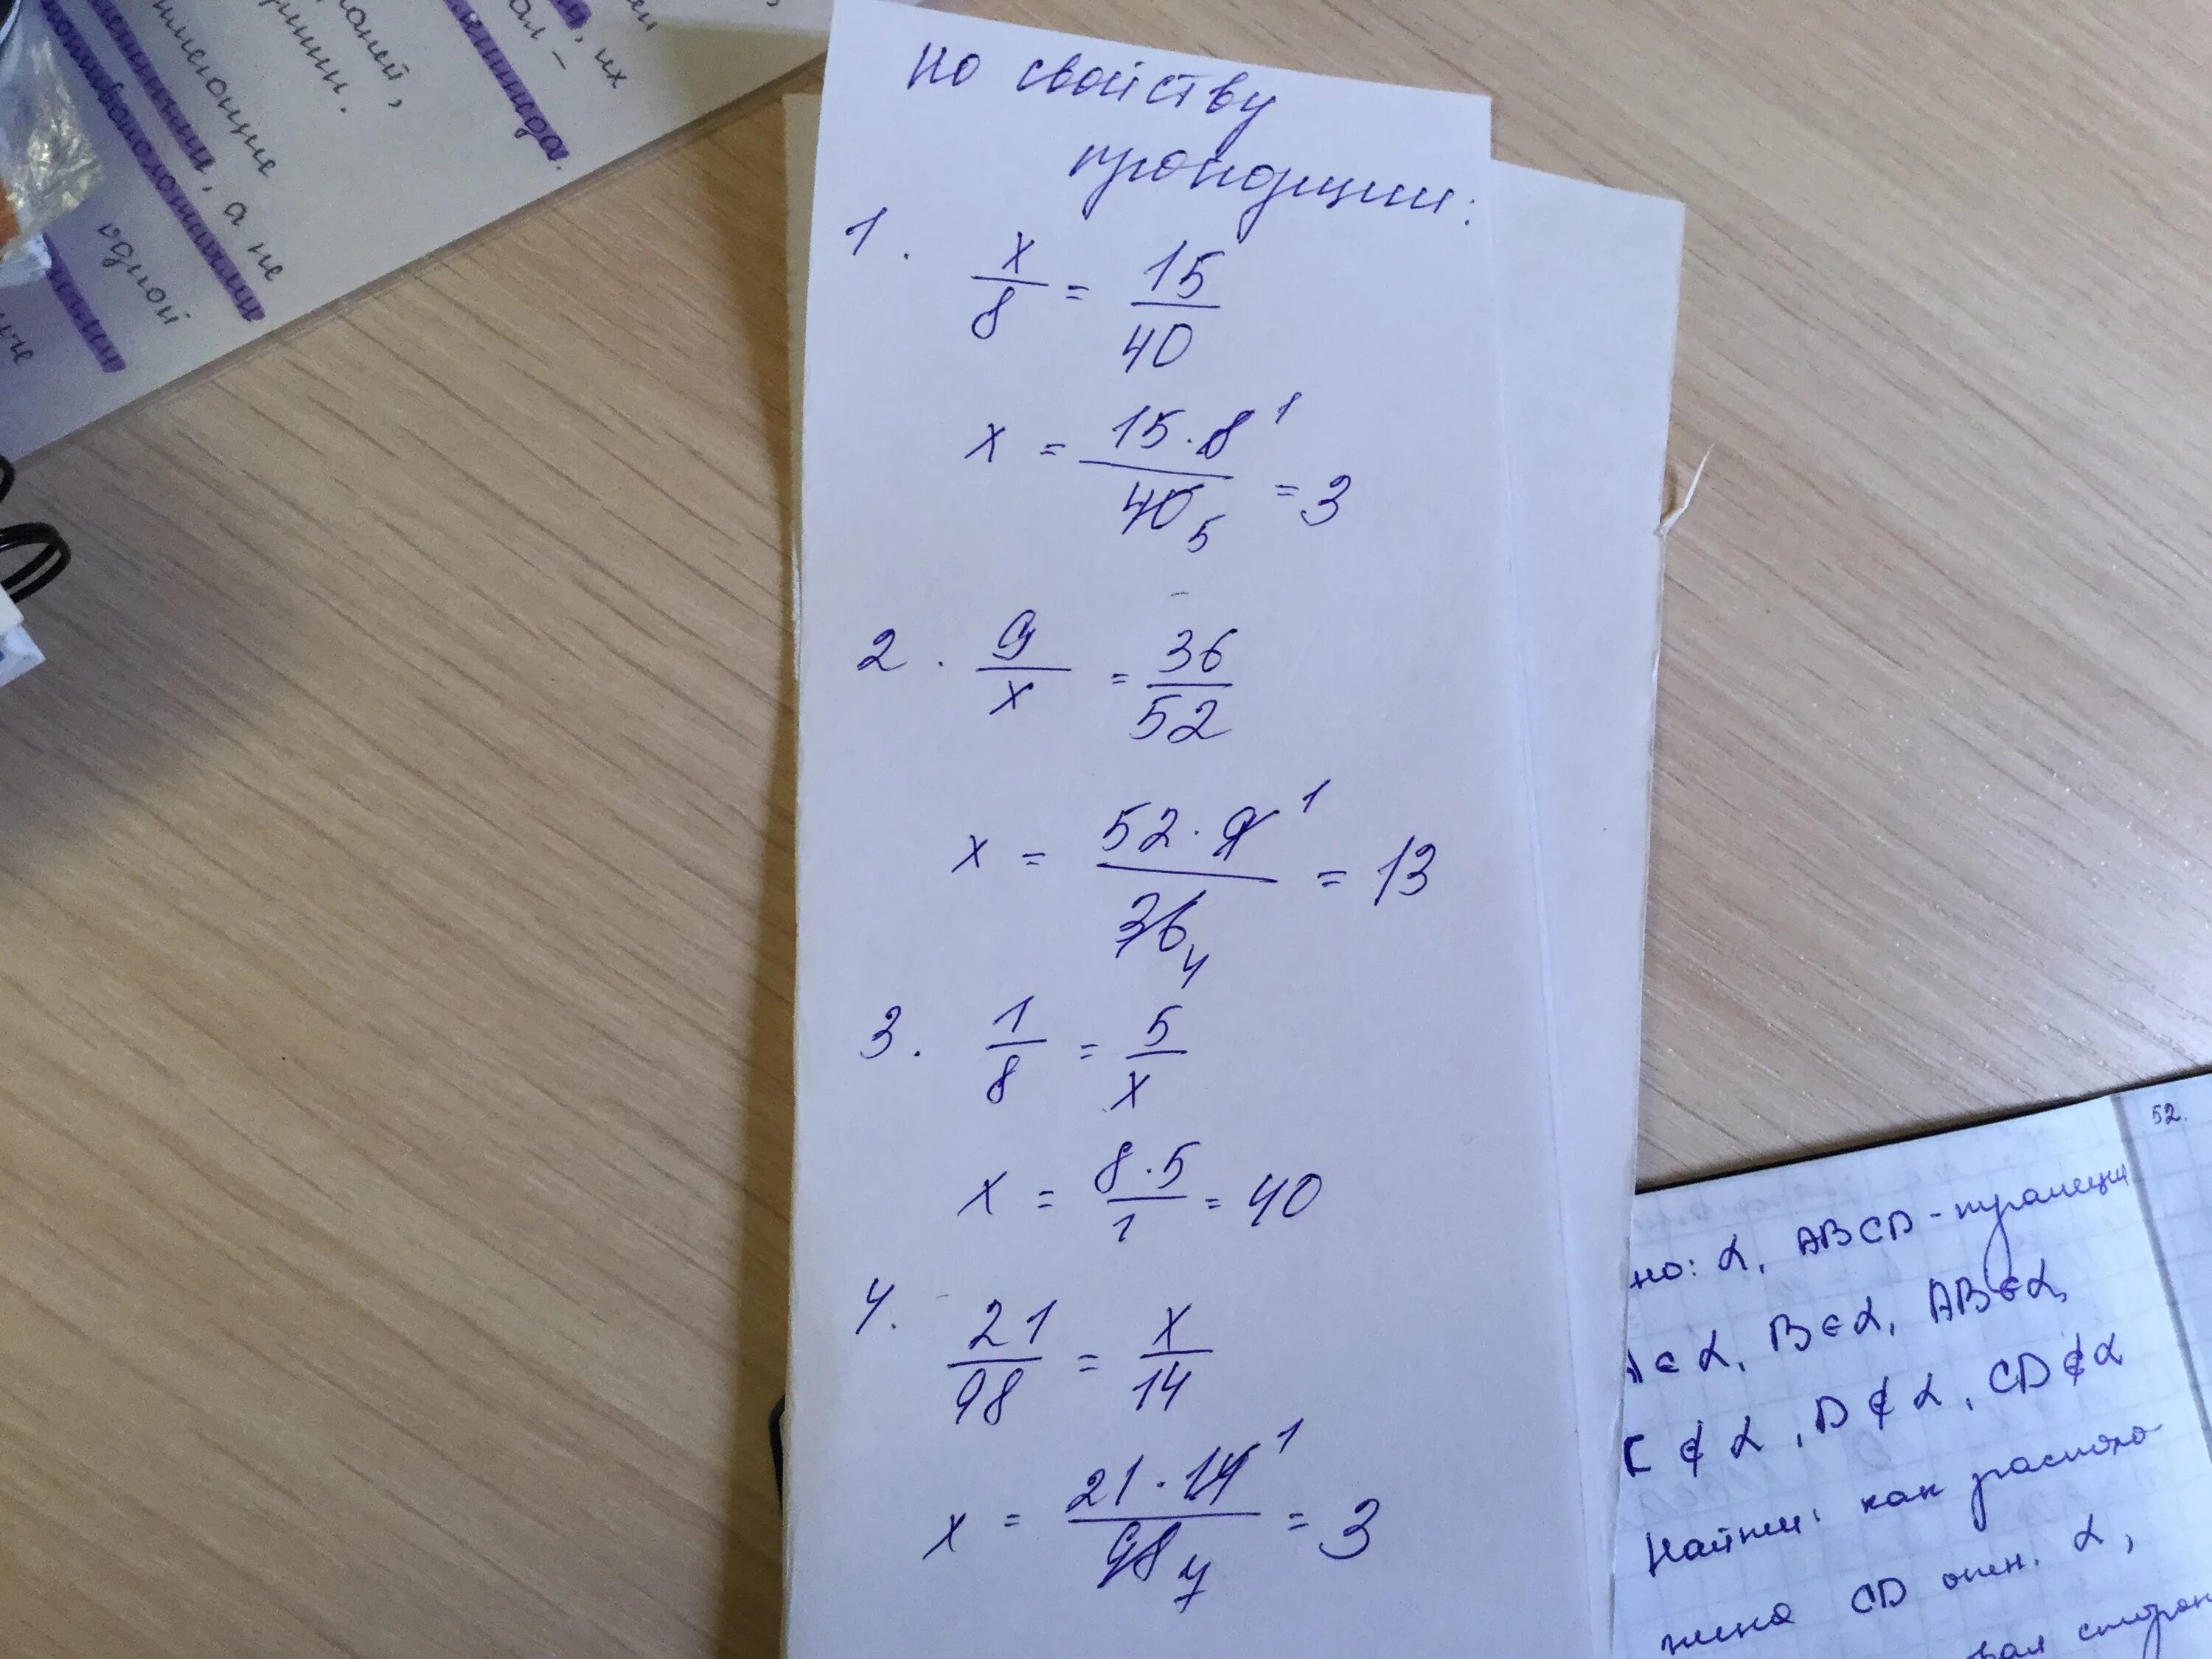 по свойству
пропорции:
1. x/8 = 15/40
x = 15·8 1 / 40 5 = 3
2. 9/x = 36/52
x = 52·9 1 / 36 4 = 13
3. 1/8 = 5/x
x = 8·5 / 1 = 40
4. 21/98 = x/14
x = 21·14 1 / 98 7 = 3
52.
но: α, ABCD - трапеция
A ∈ α, B ∈ α, AB ∈ α,
C ∉ α, D ∉ α, CD ∉ α
Найти: как располо
жена CD отн. α,
, их
, а не
одной